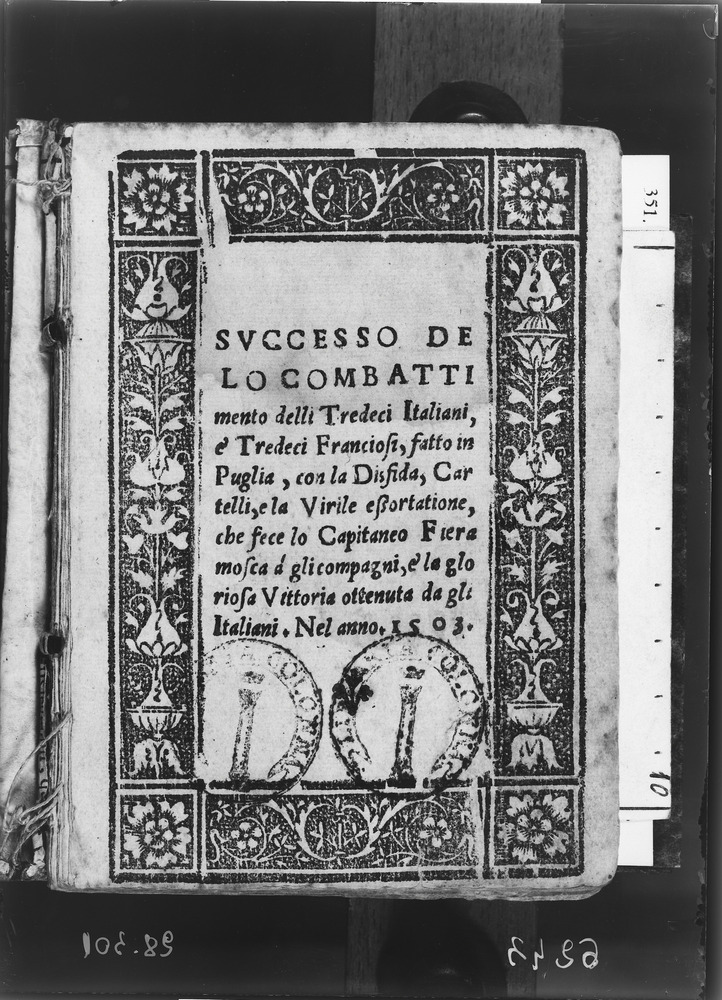 SVCCESSO DE
LO COMBATTI
mento delli Tredeci Italiani,
e' Tredeci Franciosi, fatto in
Puglia, con la Disfida, Car
telli, e la Virile essortatione,
che fece lo Capitaneo Fiera
mosca á gli compagni, e' la glo
riosa Vittoria ottenuta da gli
Italiani. Nel anno. 1503.
351.
10
98.301
6243